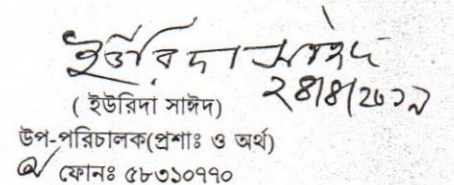 ইউরিদা সাঈদ
২৪/৪/২০১৯
( ইউরিদা সাঈদ)
উপ-পরিচালক(প্রশাঃ ও অর্থ)
ফোনঃ ৫৮৩১০৭৭০